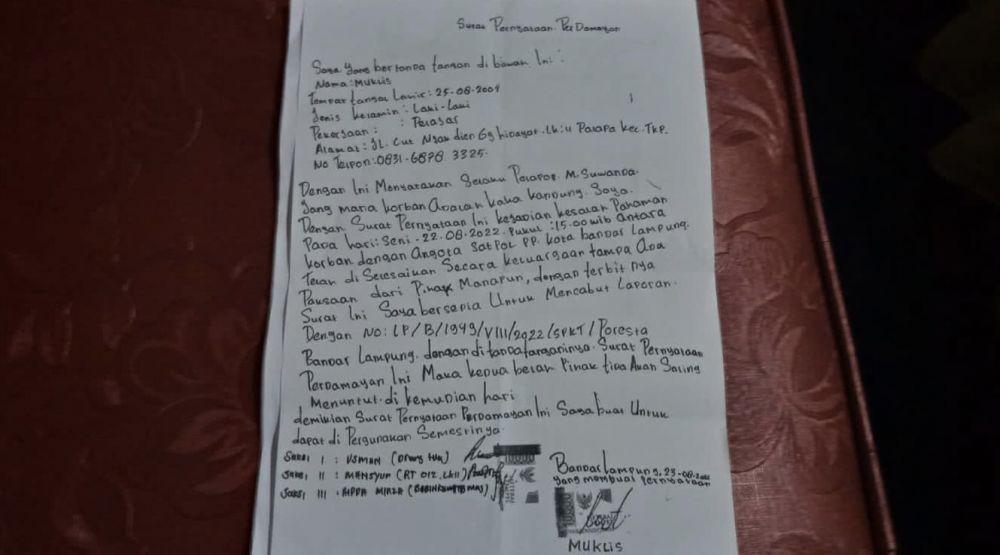 Surat Pernyataan PerDamayan
Saya yang bertanda tangan di bawah Ini :
Nama : MUKLIS
Tempat tanggal Lahir : 25-08-2004
Jenis kelamin : Laki-Laki
Pekerjaan : Pelajar
Alamat : JL. Cut Nyak dien Gg hidayat. Lk: II Palapa kec. TKP.
No Telpon : 0831-6878 3325.
Dengan Ini Menyatakan Selaku Pelapor M. Suwanda.
Yang mana korban Adalah kaka kandung Saya.
Dengan Surat Pernyataan Ini kejadian kesalah Pahaman
Pada hari : Seni - 22.08.2022. Pukul : 15.00 wib antara
korban dengan Angota Satpol PP. kota bandar Lampung.
Telah di Selesaikan Secara keluargaan tampa Ada
Paksaan dari Pihak Manapun, dengan terbit nya
Surat Ini Saya bersedia Untuk Mencabut Laporan.
Dengan No : LP/B/1949/VIII/2022/SPKT/Poresta
Bandar Lampung. dengan di tandatanganinya. Surat Pernyataan
Perdamayan Ini Maka kedua belah Pihak tida Akan Saling
Menuntut. di kemudian hari
demikian Surat Pernyataan Perdamayan Ini Saya buat Untuk
dapat di Pergunakan Semestinya.
SAKSI I : USMAN
SAKSI II : MANSYUR (RT 012. LKII)
SAKSI III : AIPDA MIRZA (BABINKAMTIBMAS)
10000
Bandar Lampung, 23-08-2022
Yang membuat Pernyataan
MUKLIS